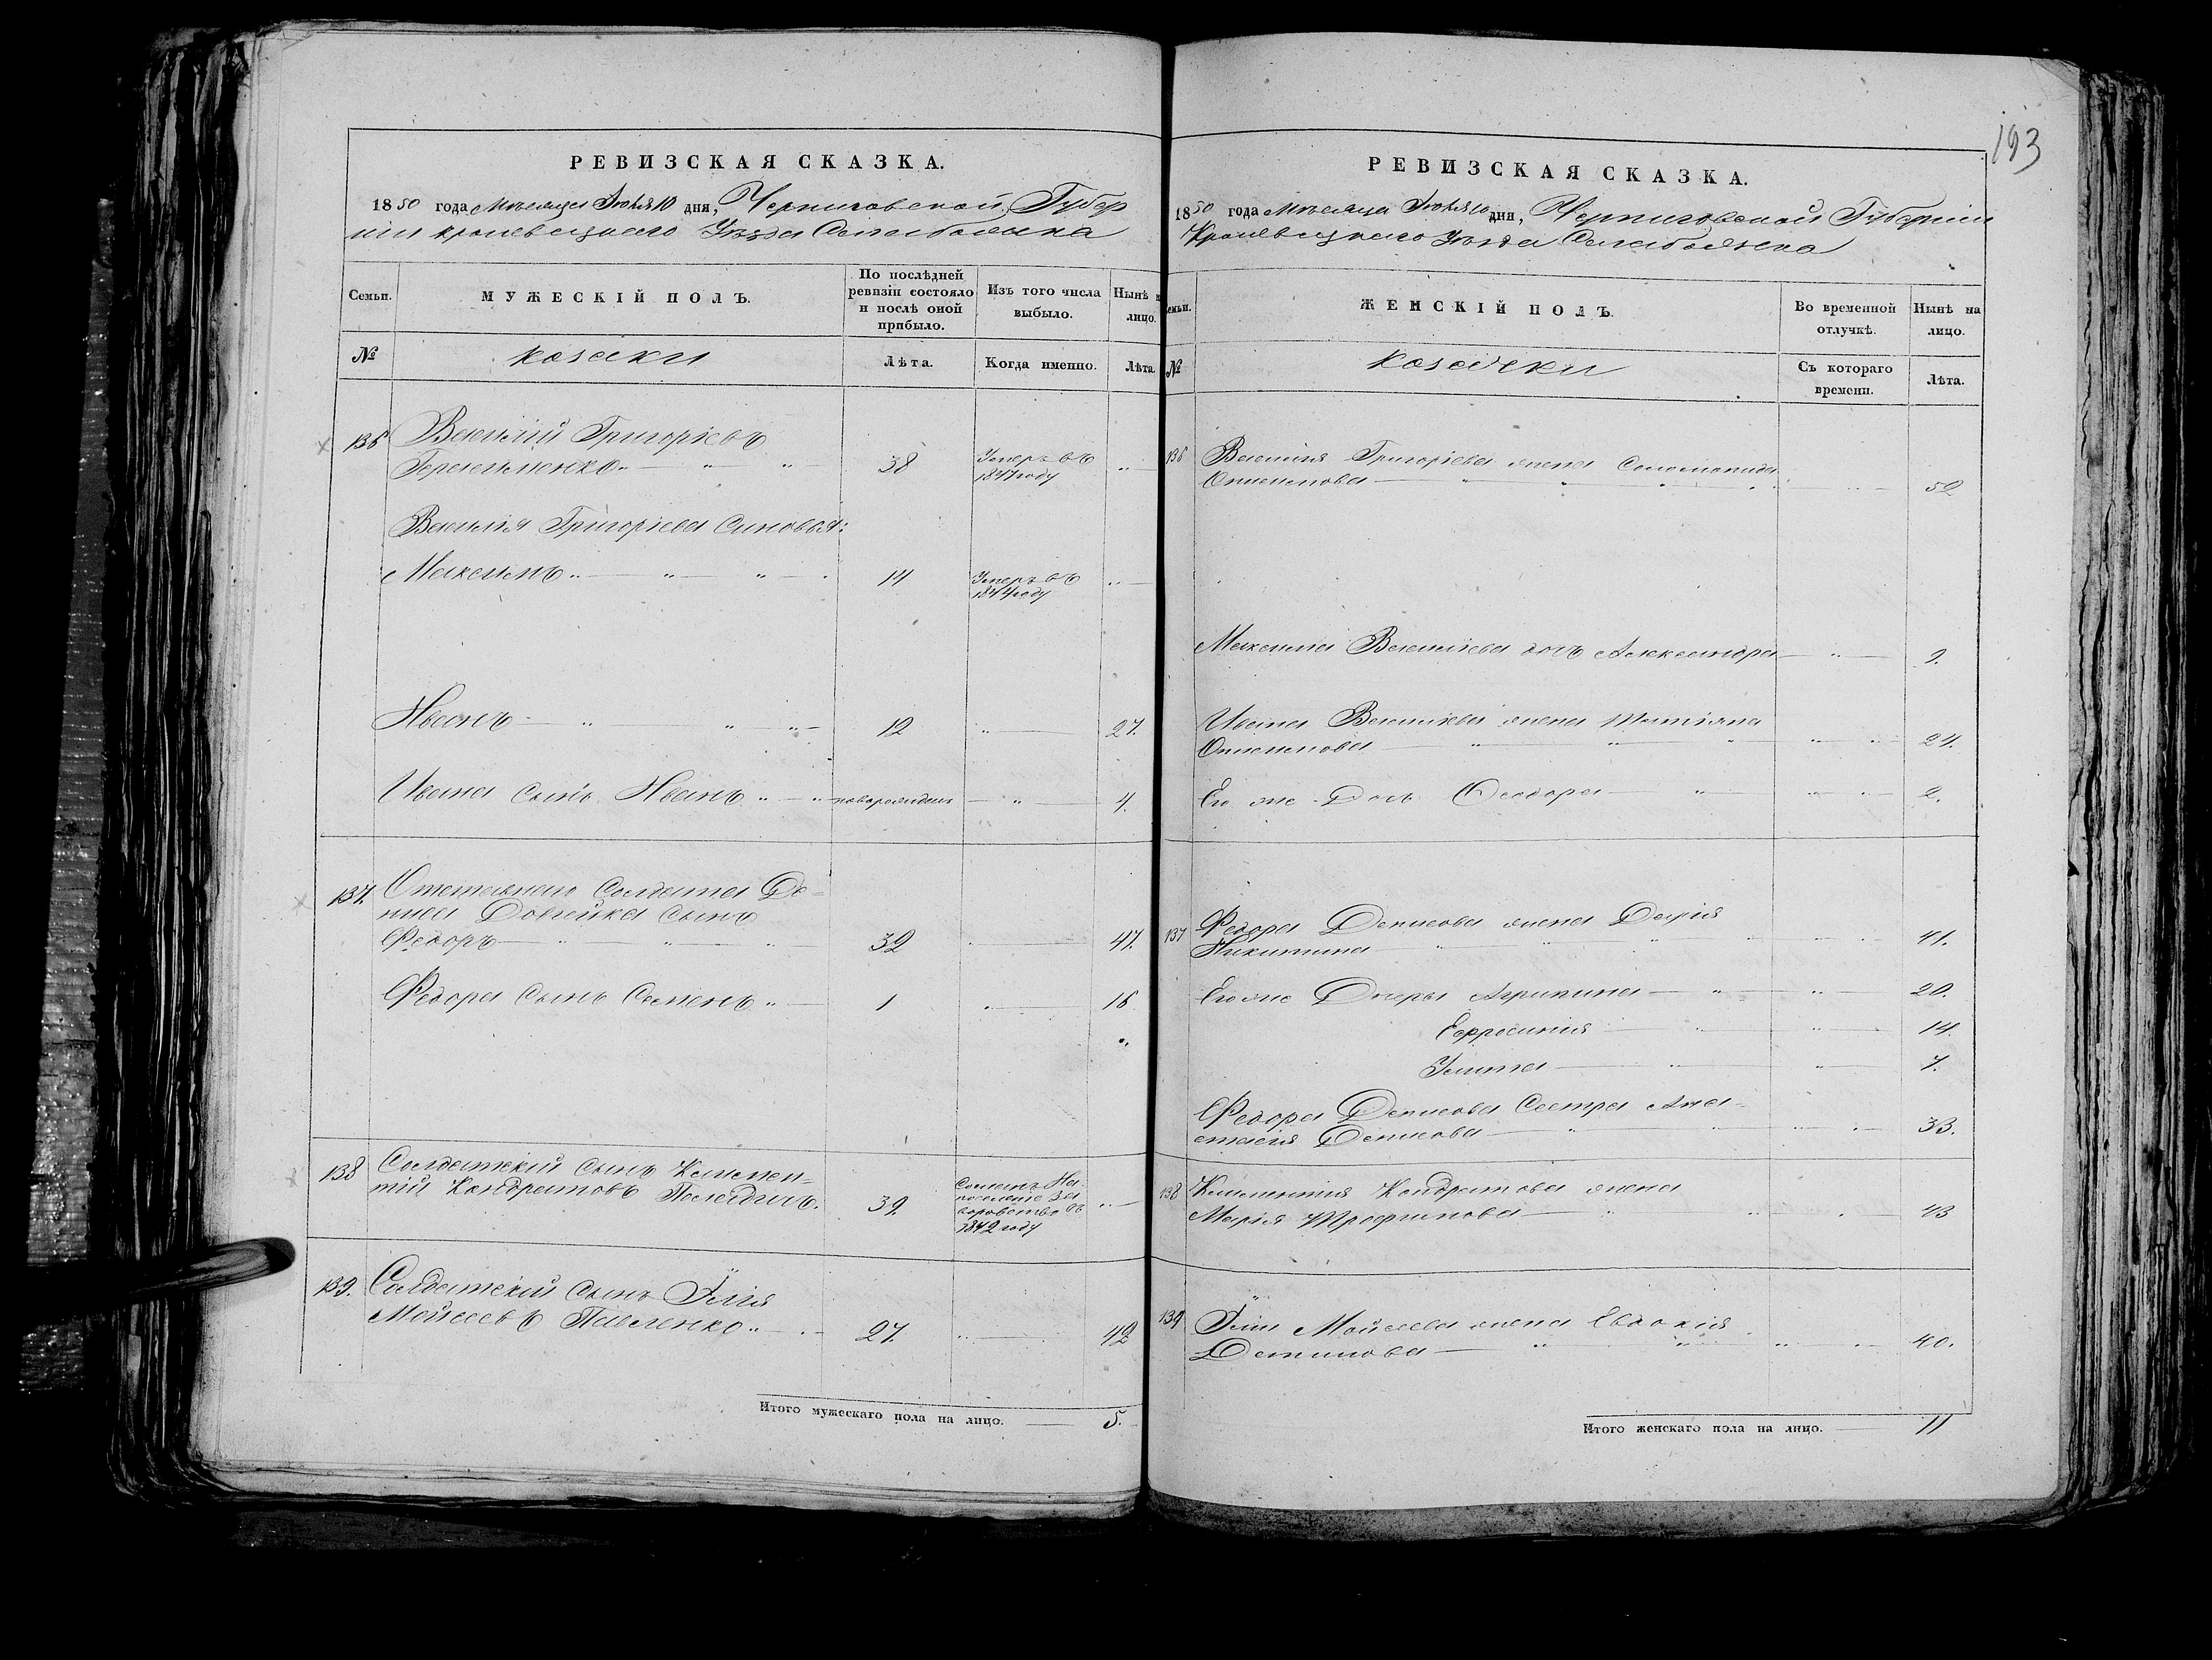 РЕВИЗСКАЯ СКАЗКА.
1850 года Месяца Июня 10 дня, Черниговской Губер
ніи Кролевецкаго Уезда
Семьи.
МУЖЕСКІЙ ПОЛЪ.
По послѣдней ревизіи состояло и послѣ оной прибыло.
Изъ того числа выбыло.
Нынѣ на лицо.
№
Козаки
Лѣта.
Когда именно.
Лѣта.
136
Василій Григоріевъ
Герасименко 38 Умеръ въ 1847 году
Василія Григоріева Синовья:
Максимъ 14 Умеръ въ 1844 году
Иванъ 12 27.
Ивана сынъ Иванъ новорожден 4.
137. Отставнаго Солдата Де-
ниса Довгейка сынъ
Федоръ 32 47.
Федора Сынъ Семенъ 1 16
138 Солдатскій Сынъ Климен-
тій Кондратовъ 39. Сосланъ На поселеніе За воровство въ 1842 году
139. Солдатскій Сынъ Илія
Мойсеевъ Павленко 27. 42
Итого мужескаго пола на лицо. 5.
193
РЕВИЗСКАЯ СКАЗКА.
1850 года Месяца Июня 10 дня, Черниговской Губерніи
Кролевецкаго Уезда
Семьи.
ЖЕНСКІЙ ПОЛЪ.
Во временной отлучкѣ.
Нынѣ на лицо.
№
Козачки
Съ котораго времени.
Лѣта.
136 Василія Григоріева жена Соломонида
Степанова 52
Максима Васильева дочь Александра 9.
Ивана Васильева жена Татіяна
Степанова 24.
Его же Дочь Феодора 2.
137 Федора Денисова жена Дарія
Никитина 41.
Его же Дочеры Агрипина 20.
Ефросинія 14.
Улита 7.
Федора Денисова Сестра Ана-
стасія Денисова 33.
138 Климентія Кондратова жена
Марія Трофимова 43
139 Иліи Мойсеева жена Евдокія
40.
Итого женскаго пола на лицо. 11